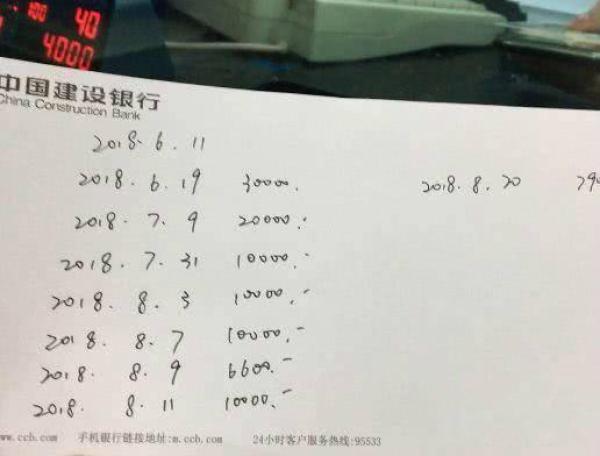 100 40
4.000
中国建设银行
China Construction Bank
2018. 6. 11
2018. 6. 19 30000. 2018. 8. 20
2018. 7. 9 20000.-
2018. 7. 31 10000.-
2018. 8. 3 10000.-
2018. 8. 7 10000.-
2018. 8. 9 6600.-
2018. 8. 11 10000.-
www.ccb.com 手机银行链接地址:m.ccb.com 24小时客户服务热线:95533